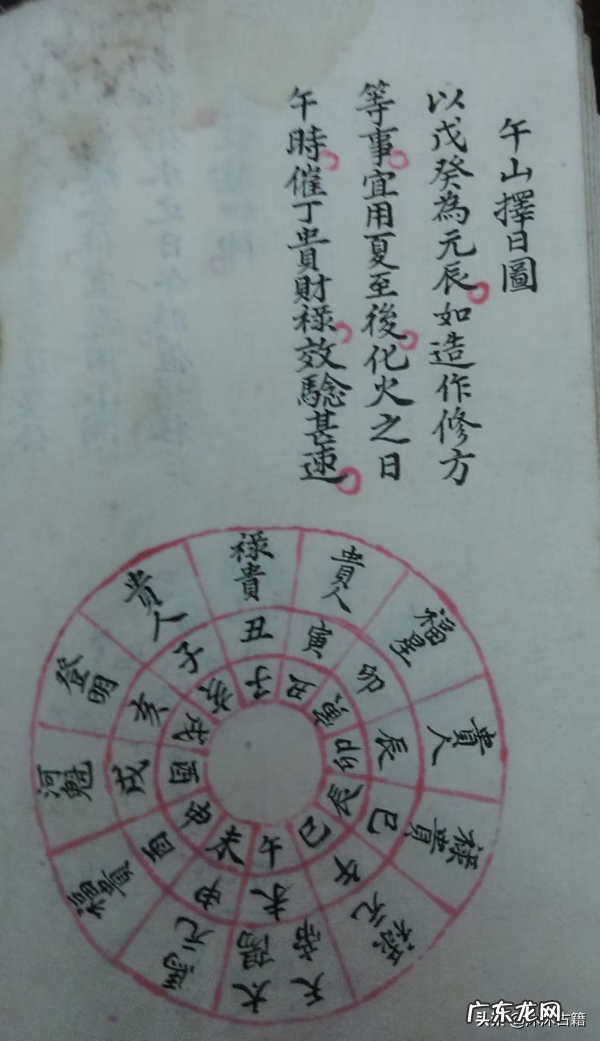 午山擇日圖
以戊癸為元辰如造作修方
等事宜用夏至後化火之日
午時催丁貴財祿效驗甚速
祿貴
貴人
福星
貴人
祿貴
天常
太陽
馬元
河魁
登明
貴人
丑
寅
卯
辰
巳
午
未
申
酉
戌
亥
子
子
丑
寅
卯
辰
巳
午
未
申
酉
戌
亥
广东龙网